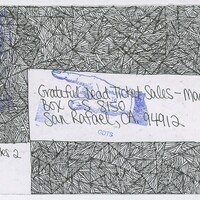 Grateful Dead Ticket Sales - Ma
Box C-S 8150
San Rafael, CA. 94912